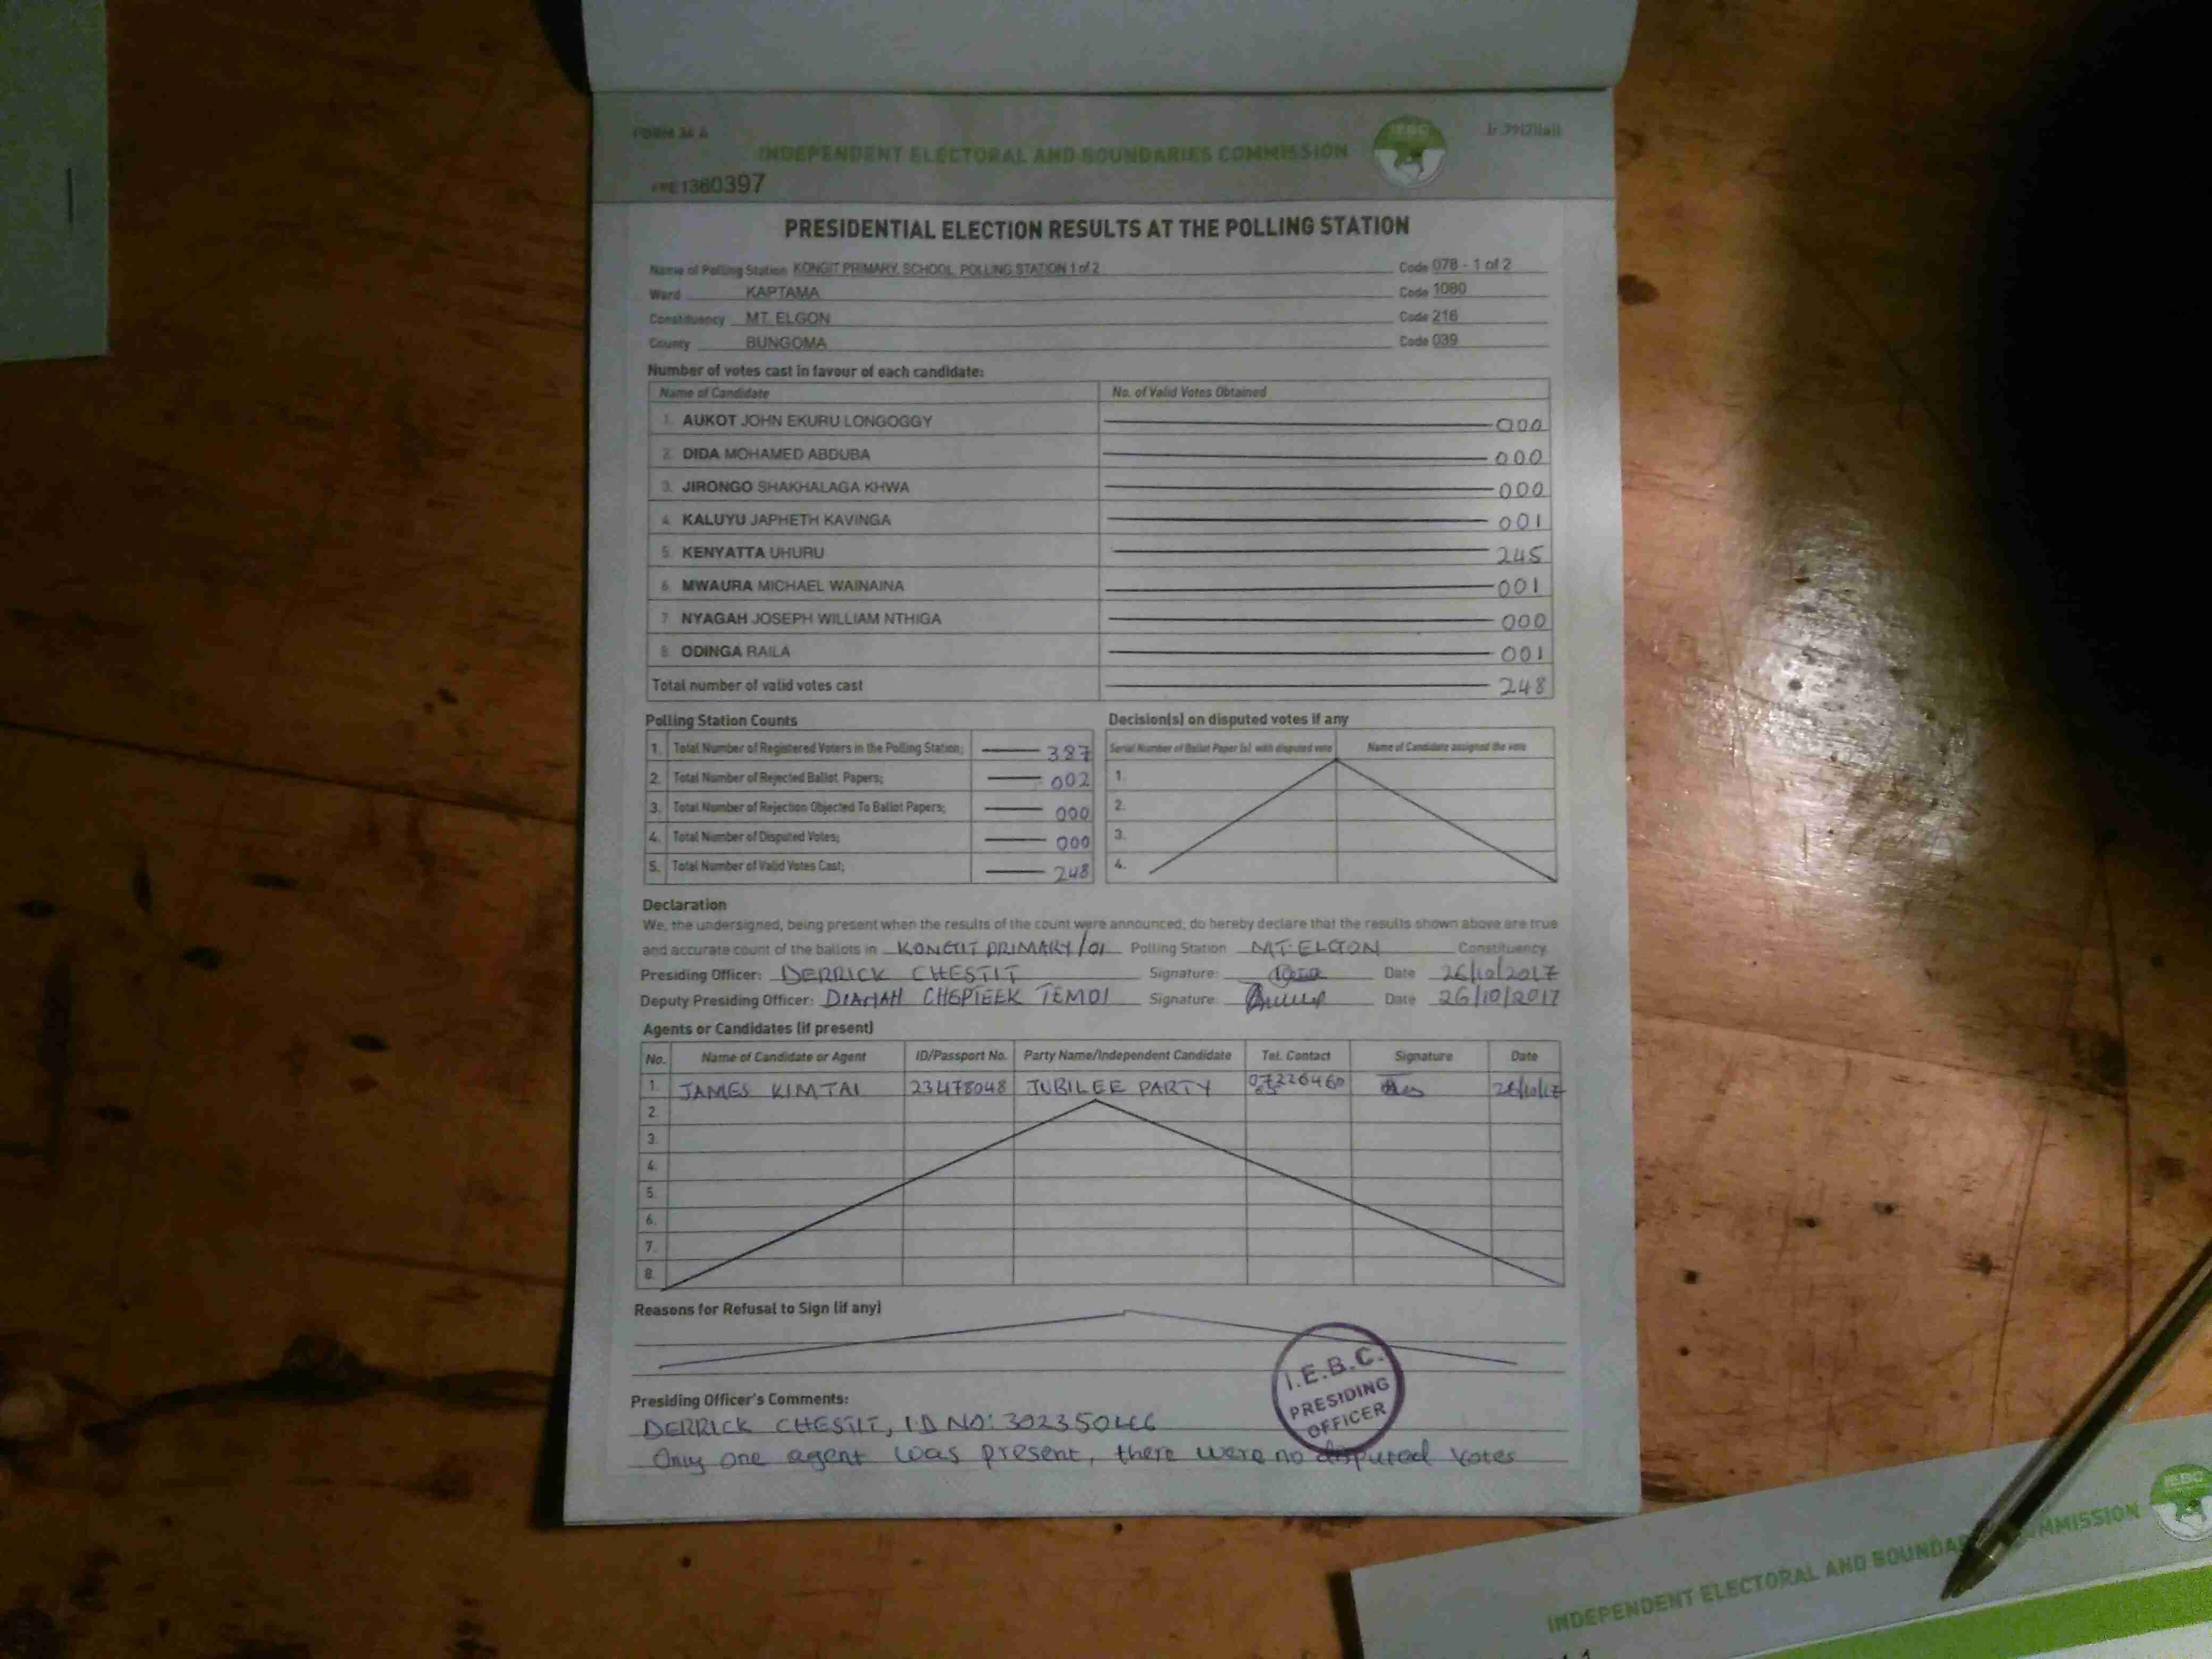 FORM 34 A
INDEPENDENT ELECTORAL AND BOUNDARIES COMMISSION
IEBC
1360397
PRESIDENTIAL ELECTION RESULTS AT THE POLLING STATION
Name of Polling Station KONGIT PRIMARY SCHOOL POLLING STATION 1 of 2 Code 078 - 1 of 2
Ward KAPTAMA Code 1080
Constituency MT. ELGON Code 216
County BUNGOMA Code 039
Number of votes cast in favour of each candidate:
Name of Candidate No. of Valid Votes Obtained
1. AUKOT JOHN EKURU LONGOGGY 000
2. DIDA MOHAMED ABDUBA 000
3. JIRONGO SHAKHALAGA KHWA 000
4. KALUYU JAPHETH KAVINGA 001
5. KENYATTA UHURU 245
6. MWAURA MICHAEL WAINAINA 001
7. NYAGAH JOSEPH WILLIAM NTHIGA 000
8. ODINGA RAILA 001
Total number of valid votes cast 248
Polling Station Counts
1. Total Number of Registered Voters in the Polling Station; 387
2. Total Number of Rejected Ballot Papers; 002
3. Total Number of Rejection Objected To Ballot Papers; 000
4. Total Number of Disputed Votes; 000
5. Total Number of Valid Votes Cast; 248
Decision(s) on disputed votes if any
Serial Number of Ballot Paper (s) with disputed vote Name of Candidate assigned the vote
1.
2.
3.
4.
Declaration
We, the undersigned, being present when the results of the count were announced, do hereby declare that the results shown above are true
and accurate count of the ballots in KONGIT PRIMARY/01 Polling Station MT. ELGON Constituency
Presiding Officer: DERRICK CHESTIT Signature: Date 26/10/2017
Deputy Presiding Officer: CHEPTEEK TEMOI Signature: Date 26/10/2017
Agents or Candidates (if present)
No. Name of Candidate or Agent ID/Passport No. Party Name/Independent Candidate Tel. Contact Signature Date
1. JAMES KIMTAI 23478048 JUBILEE PARTY 26/10/17
2.
3.
4.
5.
6.
7.
8.
Reasons for Refusal to Sign (if any)
I.E.B.C.
PRESIDING
OFFICER
Presiding Officer's Comments:
DERRICK CHESTIT, I.D NO:
Only one agent was present, there were no disputed votes
INDEPENDENT ELECTORAL AND BOUNDARIES COMMISSION
IEBC